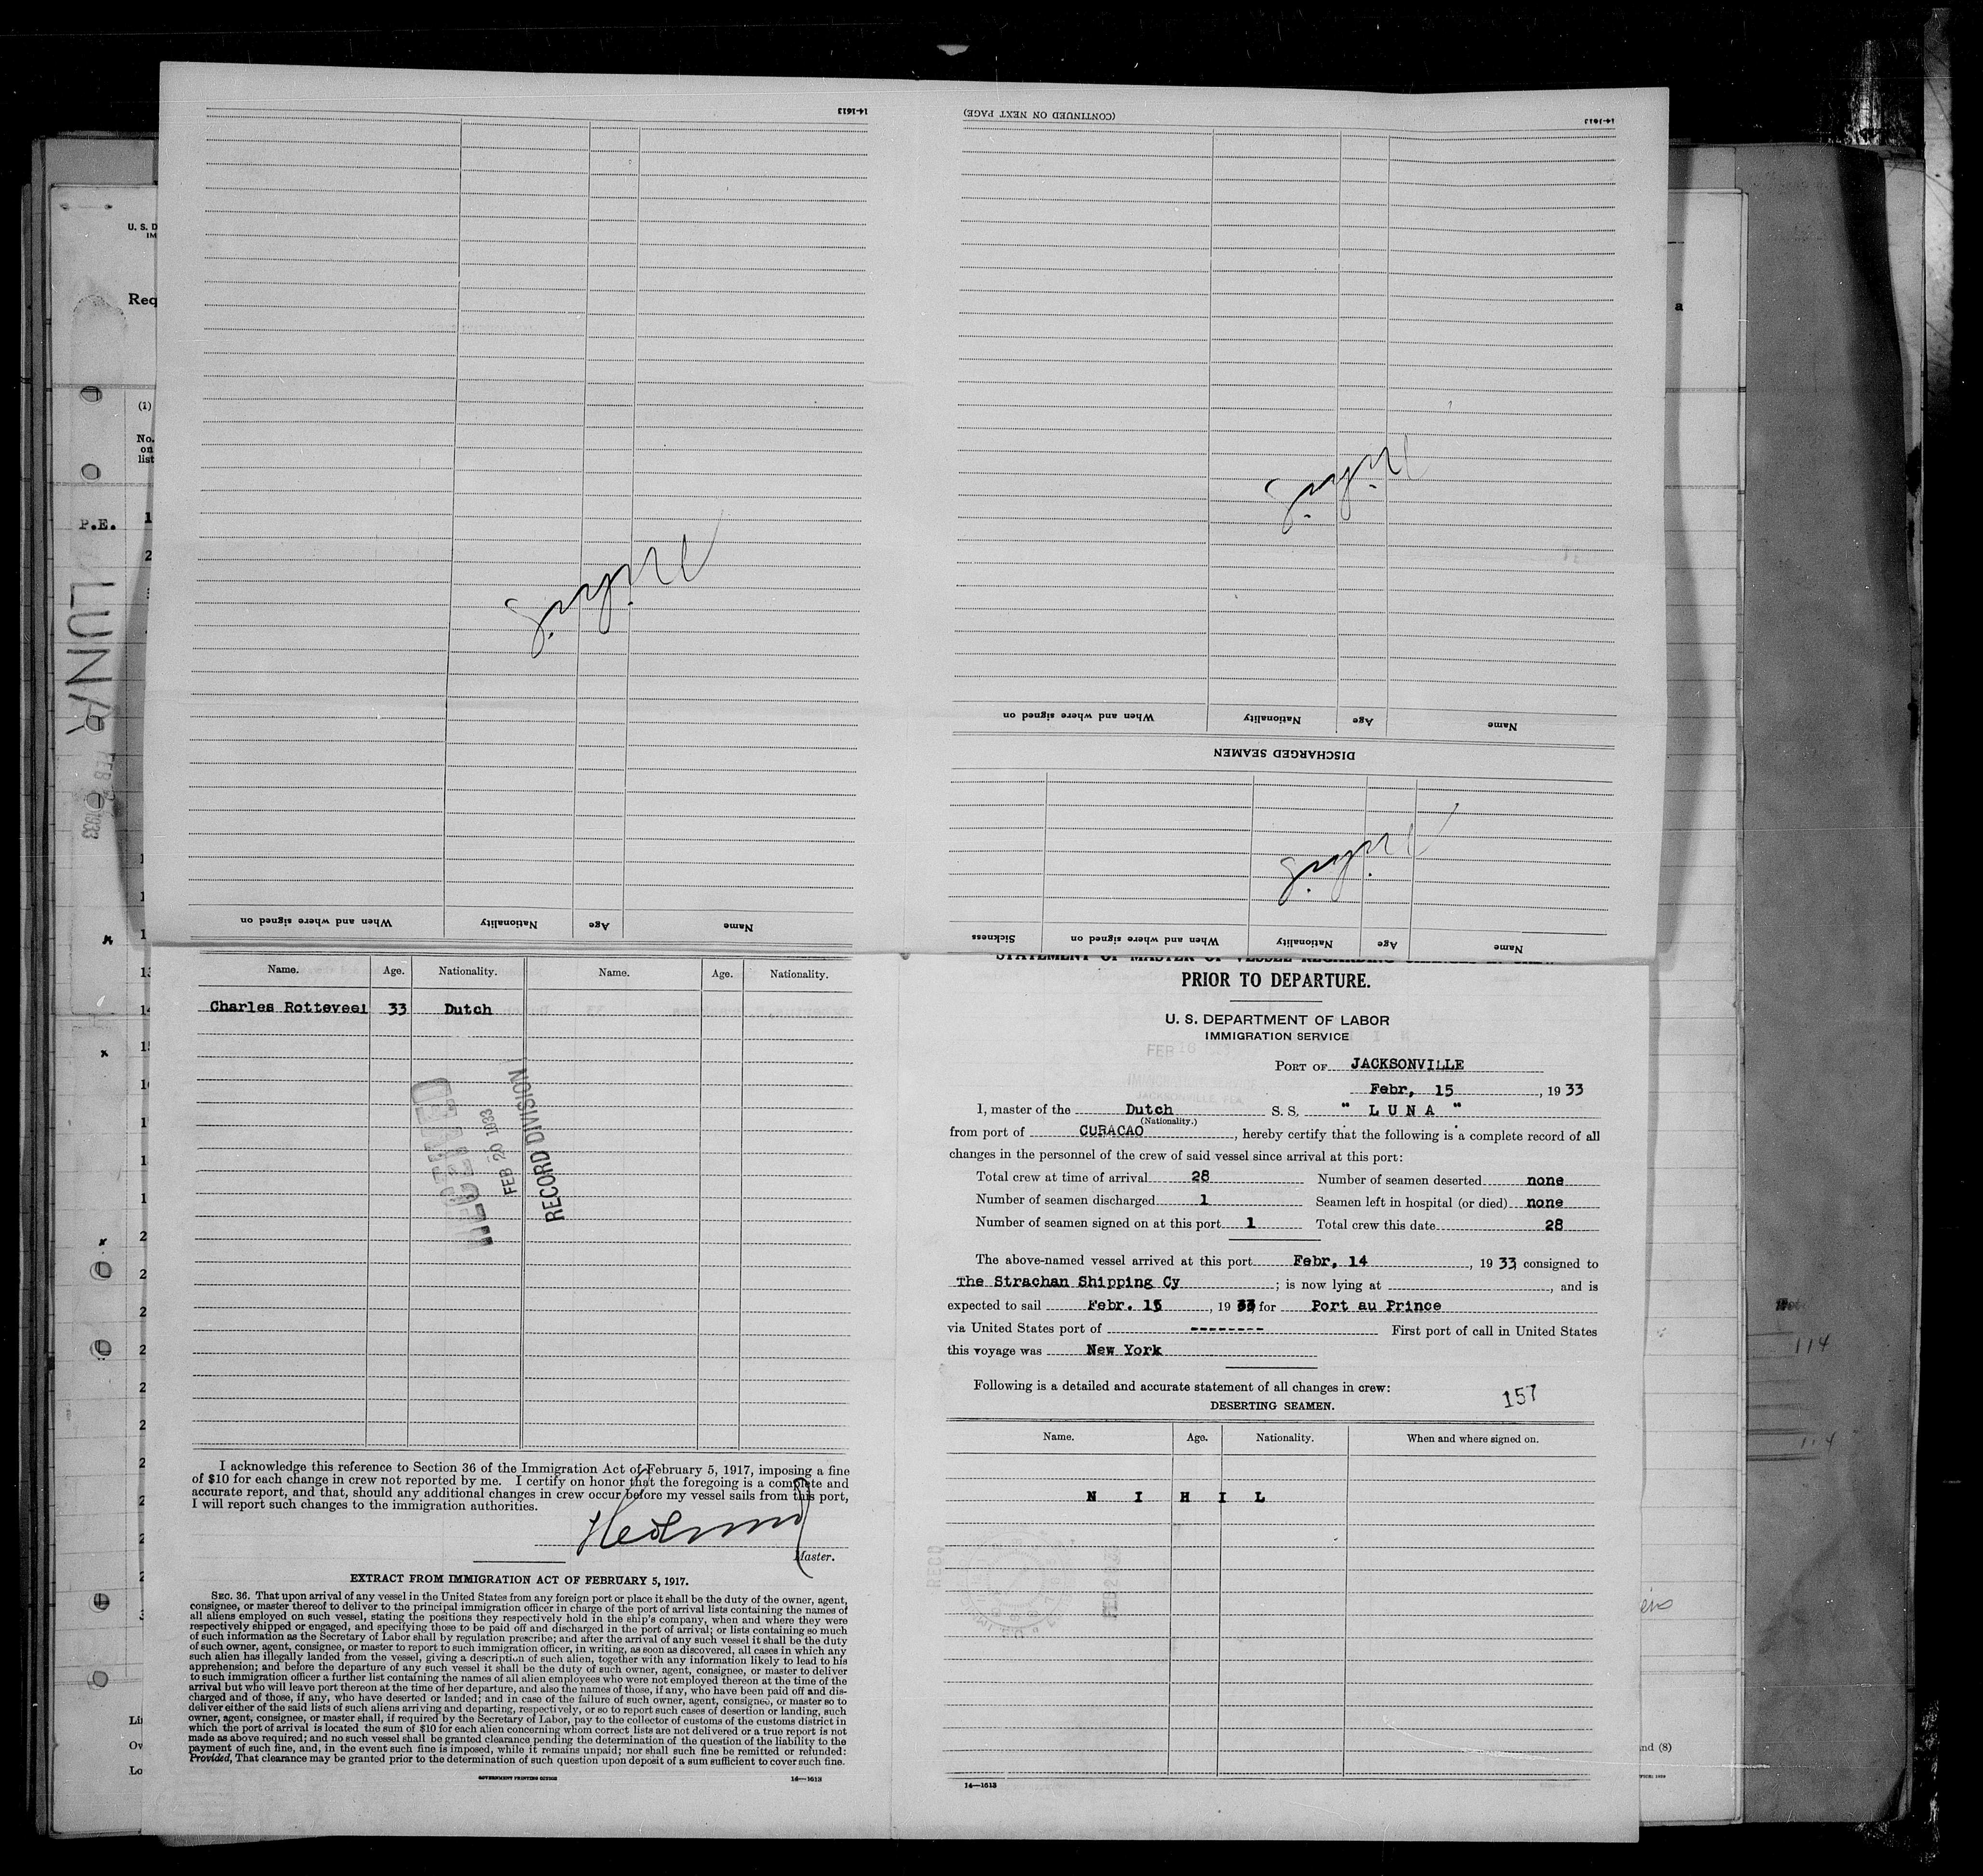 14-1613
(CONTINUED ON NEXT PAGE)
14-1613
When and where signed on
Nationality
Age
Name
DISCHARGED SEAMEN
Sickness
When and where signed on
Nationality
Age
Name
When and where signed on
Nationality
Age
Name
U. S. D
IM
Req
(1)
No.
on
list
P.E.
LUNA
Name. Age. Nationality. Name. Age. Nationality.
Charles Rotteveel 33 Dutch
RECEIVED
FEB 20 1933
RECORD DIVISION
I acknowledge this reference to Section 36 of the Immigration Act of February 5, 1917, imposing a fine
of $10 for each change in crew not reported by me. I certify on honor that the foregoing is a complete and
accurate report, and that, should any additional changes in crew occur before my vessel sails from this port,
I will report such changes to the immigration authorities.
Master.
EXTRACT FROM IMMIGRATION ACT OF FEBRUARY 5, 1917.
SEC. 36. That upon arrival of any vessel in the United States from any foreign port or place it shall be the duty of the owner, agent,
consignee, or master thereof to deliver to the principal immigration officer in charge of the port of arrival lists containing the names of
all aliens employed on such vessel, stating the positions they respectively hold in the ship's company, when and where they were
respectively shipped or engaged, and specifying those to be paid off and discharged in the port of arrival; or lists containing so much
of such information as the Secretary of Labor shall by regulation prescribe; and after the arrival of any such vessel it shall be the duty
of such owner, agent, consignee, or master to report to such immigration officer, in writing, as soon as discovered, all cases in which any
such alien has illegally landed from the vessel, giving a description of such alien, together with any information likely to lead to his
apprehension; and before the departure of any such vessel it shall be the duty of such owner, agent, consignee, or master to deliver
to such immigration officer a further list containing the names of all alien employees who were not employed thereon at the time of the
arrival but who will leave port thereon at the time of her departure, and also the names of those, if any, who have been paid off and dis-
charged and of those, if any, who have deserted or landed; and in case of the failure of such owner, agent, consignee, or master so to
deliver either of the said lists of such aliens arriving and departing, respectively, or so to report such cases of desertion or landing, such
owner, agent, consignee, or master shall, if required by the Secretary of Labor, pay to the collector of customs of the customs district in
which the port of arrival is located the sum of $10 for each alien concerning whom correct lists are not delivered or a true report is not
made as above required; and no such vessel shall be granted clearance pending the determination of the question of the liability to the
payment of such fine, and, in the event such fine is imposed, while it remains unpaid; nor shall such fine be remitted or refunded:
Provided, That clearance may be granted prior to the determination of such question upon deposit of a sum sufficient to cover such fine.
GOVERNMENT PRINTING OFFICE 14—1613
STATEMENT OF MASTER OF VESSEL REGARDING CHANGES IN CREW
PRIOR TO DEPARTURE.
U. S. DEPARTMENT OF LABOR
IMMIGRATION SERVICE
PORT OF JACKSONVILLE
Febr, 15, 1933
I, master of the Dutch S. S. " L U N A "
(Nationality.)
from port of CURACAO, hereby certify that the following is a complete record of all
changes in the personnel of the crew of said vessel since arrival at this port:
Total crew at time of arrival 28 Number of seamen deserted none
Number of seamen discharged 1 Seamen left in hospital (or died) none
Number of seamen signed on at this port 1 Total crew this date 28
The above-named vessel arrived at this port Febr, 14, 1933 consigned to
The Strachan Shipping Cy; is now lying at , and is
expected to sail Febr. 15, 1933, for Port au Prince
via United States port of -------- First port of call in United States
this voyage was New York
Following is a detailed and accurate statement of all changes in crew:
157
DESERTING SEAMEN.
Name. Age. Nationality. When and where signed on.
N I H I L
14—1613
114
nd (8)